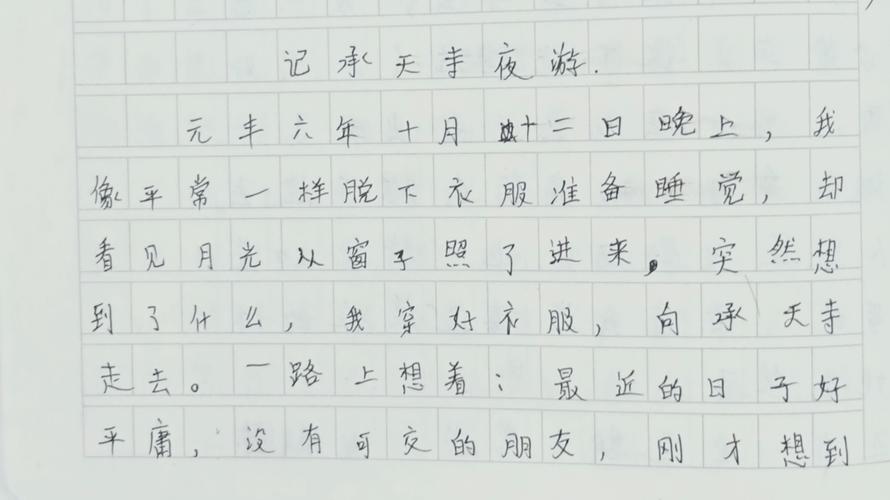 记承天寺夜游.
元丰六年十月十二日晚上，我
像平常一样脱下衣服准备睡觉，却
看见月光从窗子照了进来，突然想
到了什么，我穿好衣服，向承天寺
走去。一路上想着：最近的日子好
平庸，没有可交的朋友，刚才想到